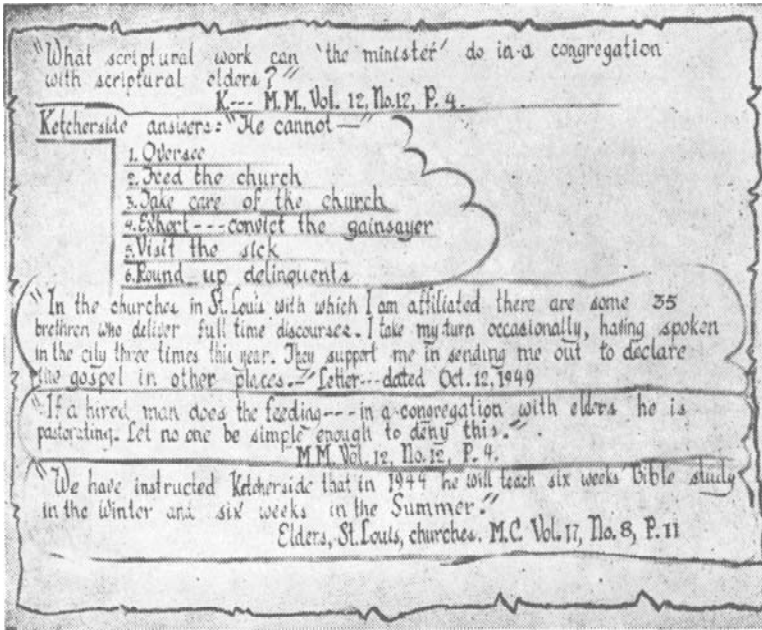 "What scriptural work can 'the minister' do in a congregation
with scriptural elders?"
K--- M.M., Vol. 12, No.12, P. 4.
Ketcherside answers: "He cannot—"
1. Oversee
2. Feed the church
3. Take care of the church
4. Exhort---convict the gainsayer
5. Visit the sick
6. Round up delinquents
"In the churches in St. Louis with which I am affiliated there are some 35
brethren who deliver full time discourses. I take my turn occasionally, having spoken
in the city three times this year. They support me in sending me out to declare
the gospel in other places.—" Letter---dated Oct. 12, 1949
"If a hired man does the feeding---in a congregation with elders he is
pastorating. Let no one be simple enough to deny this."
M.M. Vol. 12, No. 12, P. 4.
"We have instructed Ketcherside that in 1944 he will teach six weeks Bible study
in the Winter and six weeks in the Summer."
Elders, St. Louis, churches. M.C. Vol. 17, No. 8, P. 11